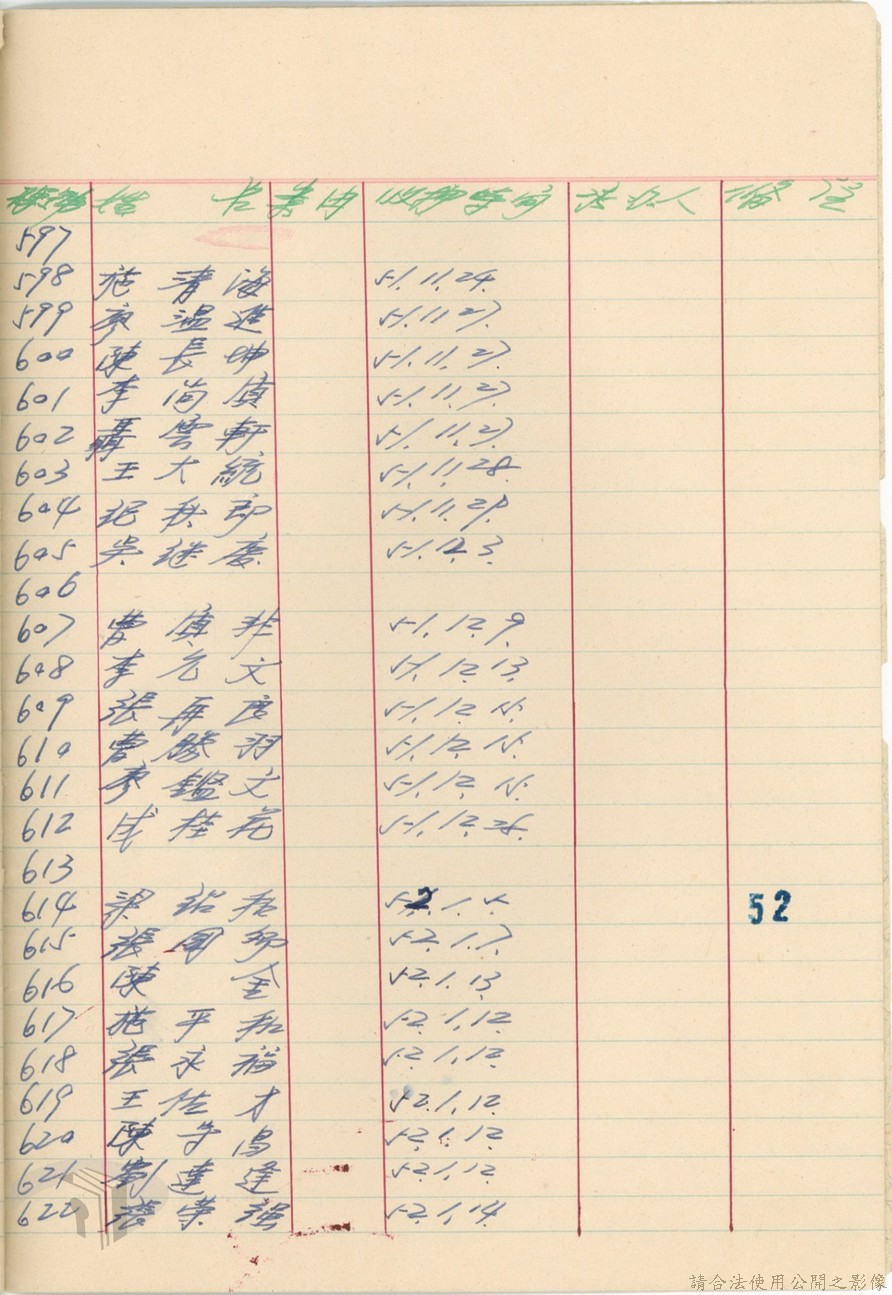 號 姓 名 案由 收 承辦人 備註
597
598 施清海 51.11.24.
599 廖温進 51.11.27.
600 陳長坤 51.11.27.
601 李尚貞 51.11.27.
602 聶雲軒 51.11.27.
603 王大統 51.11.28.
604 51.11.29.
605 吳继慶 51.12.3.
606
607 曹貞非 51.12.9.
608 李允文 51.12.13.
609 張再度 51.12.15.
610 曹勝羽 51.12.15.
611 廖鑑文 51.12.15.
612 成桂苑 51.12.26.
613
614 梁 52.1.5. 52
615 張國卿 52.1.7.
616 陳金 52.1.13.
617 施平和 52.1.12.
618 張永福 52.1.12.
619 王佐才 52.1.12.
620 陳守昌 52.1.12.
621 劉達 52.1.12.
622 張榮強 52.1.14.
請合法使用公開之影像